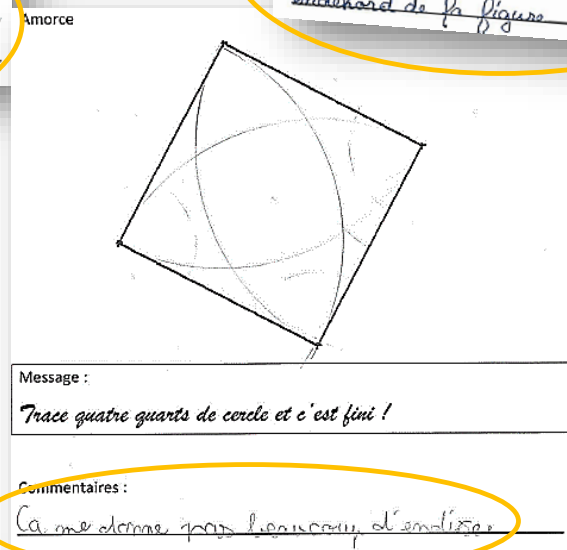 de la figure
Amorce
Message :
Trace quatre quarts de cercle et c'est fini !
Commentaires :
Ça me donne pas beaucoup d'endice.